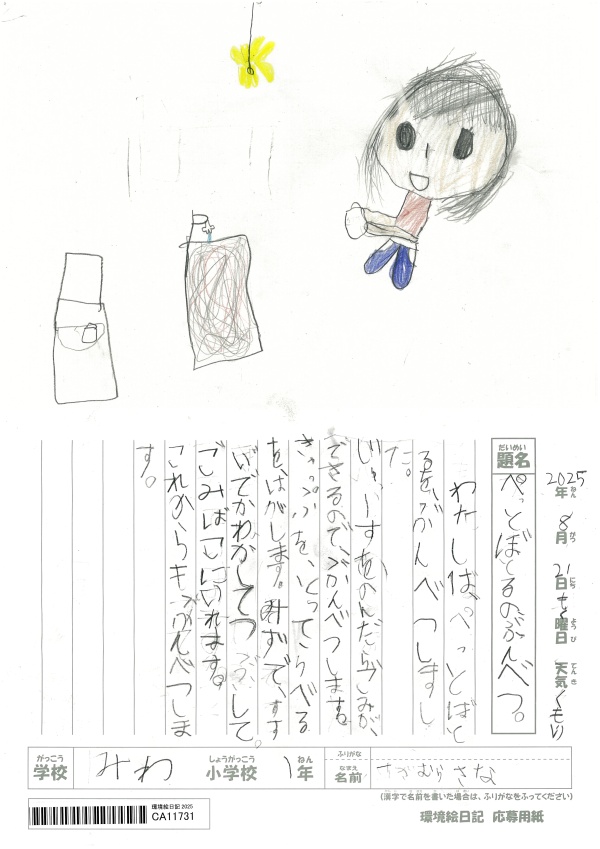 2025年 8月 21日 もく曜日 天気 くもり
ねん がつ にち ようび てんき
だいめい
題名
ぺっとぼとるのぶんべつ。
わたしは、ぺっとぼと
るを、ぶんべつしまし
た。
じゅーすをのんだらごみが、
できるので、ぶんべつします。
きゃっぷを、とってらべる
を、はがします。みずで、すす
いでかわかしてつぶして
ごみばこにいれます。
これからもぶんべつしま
す。
がっこう
学校
みわ
しょうがっこう
小学校
1年
ねん
ふりがな
なまえ
名前
さな
(漢字で名前を書いた場合は、ふりがなをふってください)
環境絵日記 2025
CA11731
環境絵日記 応募用紙